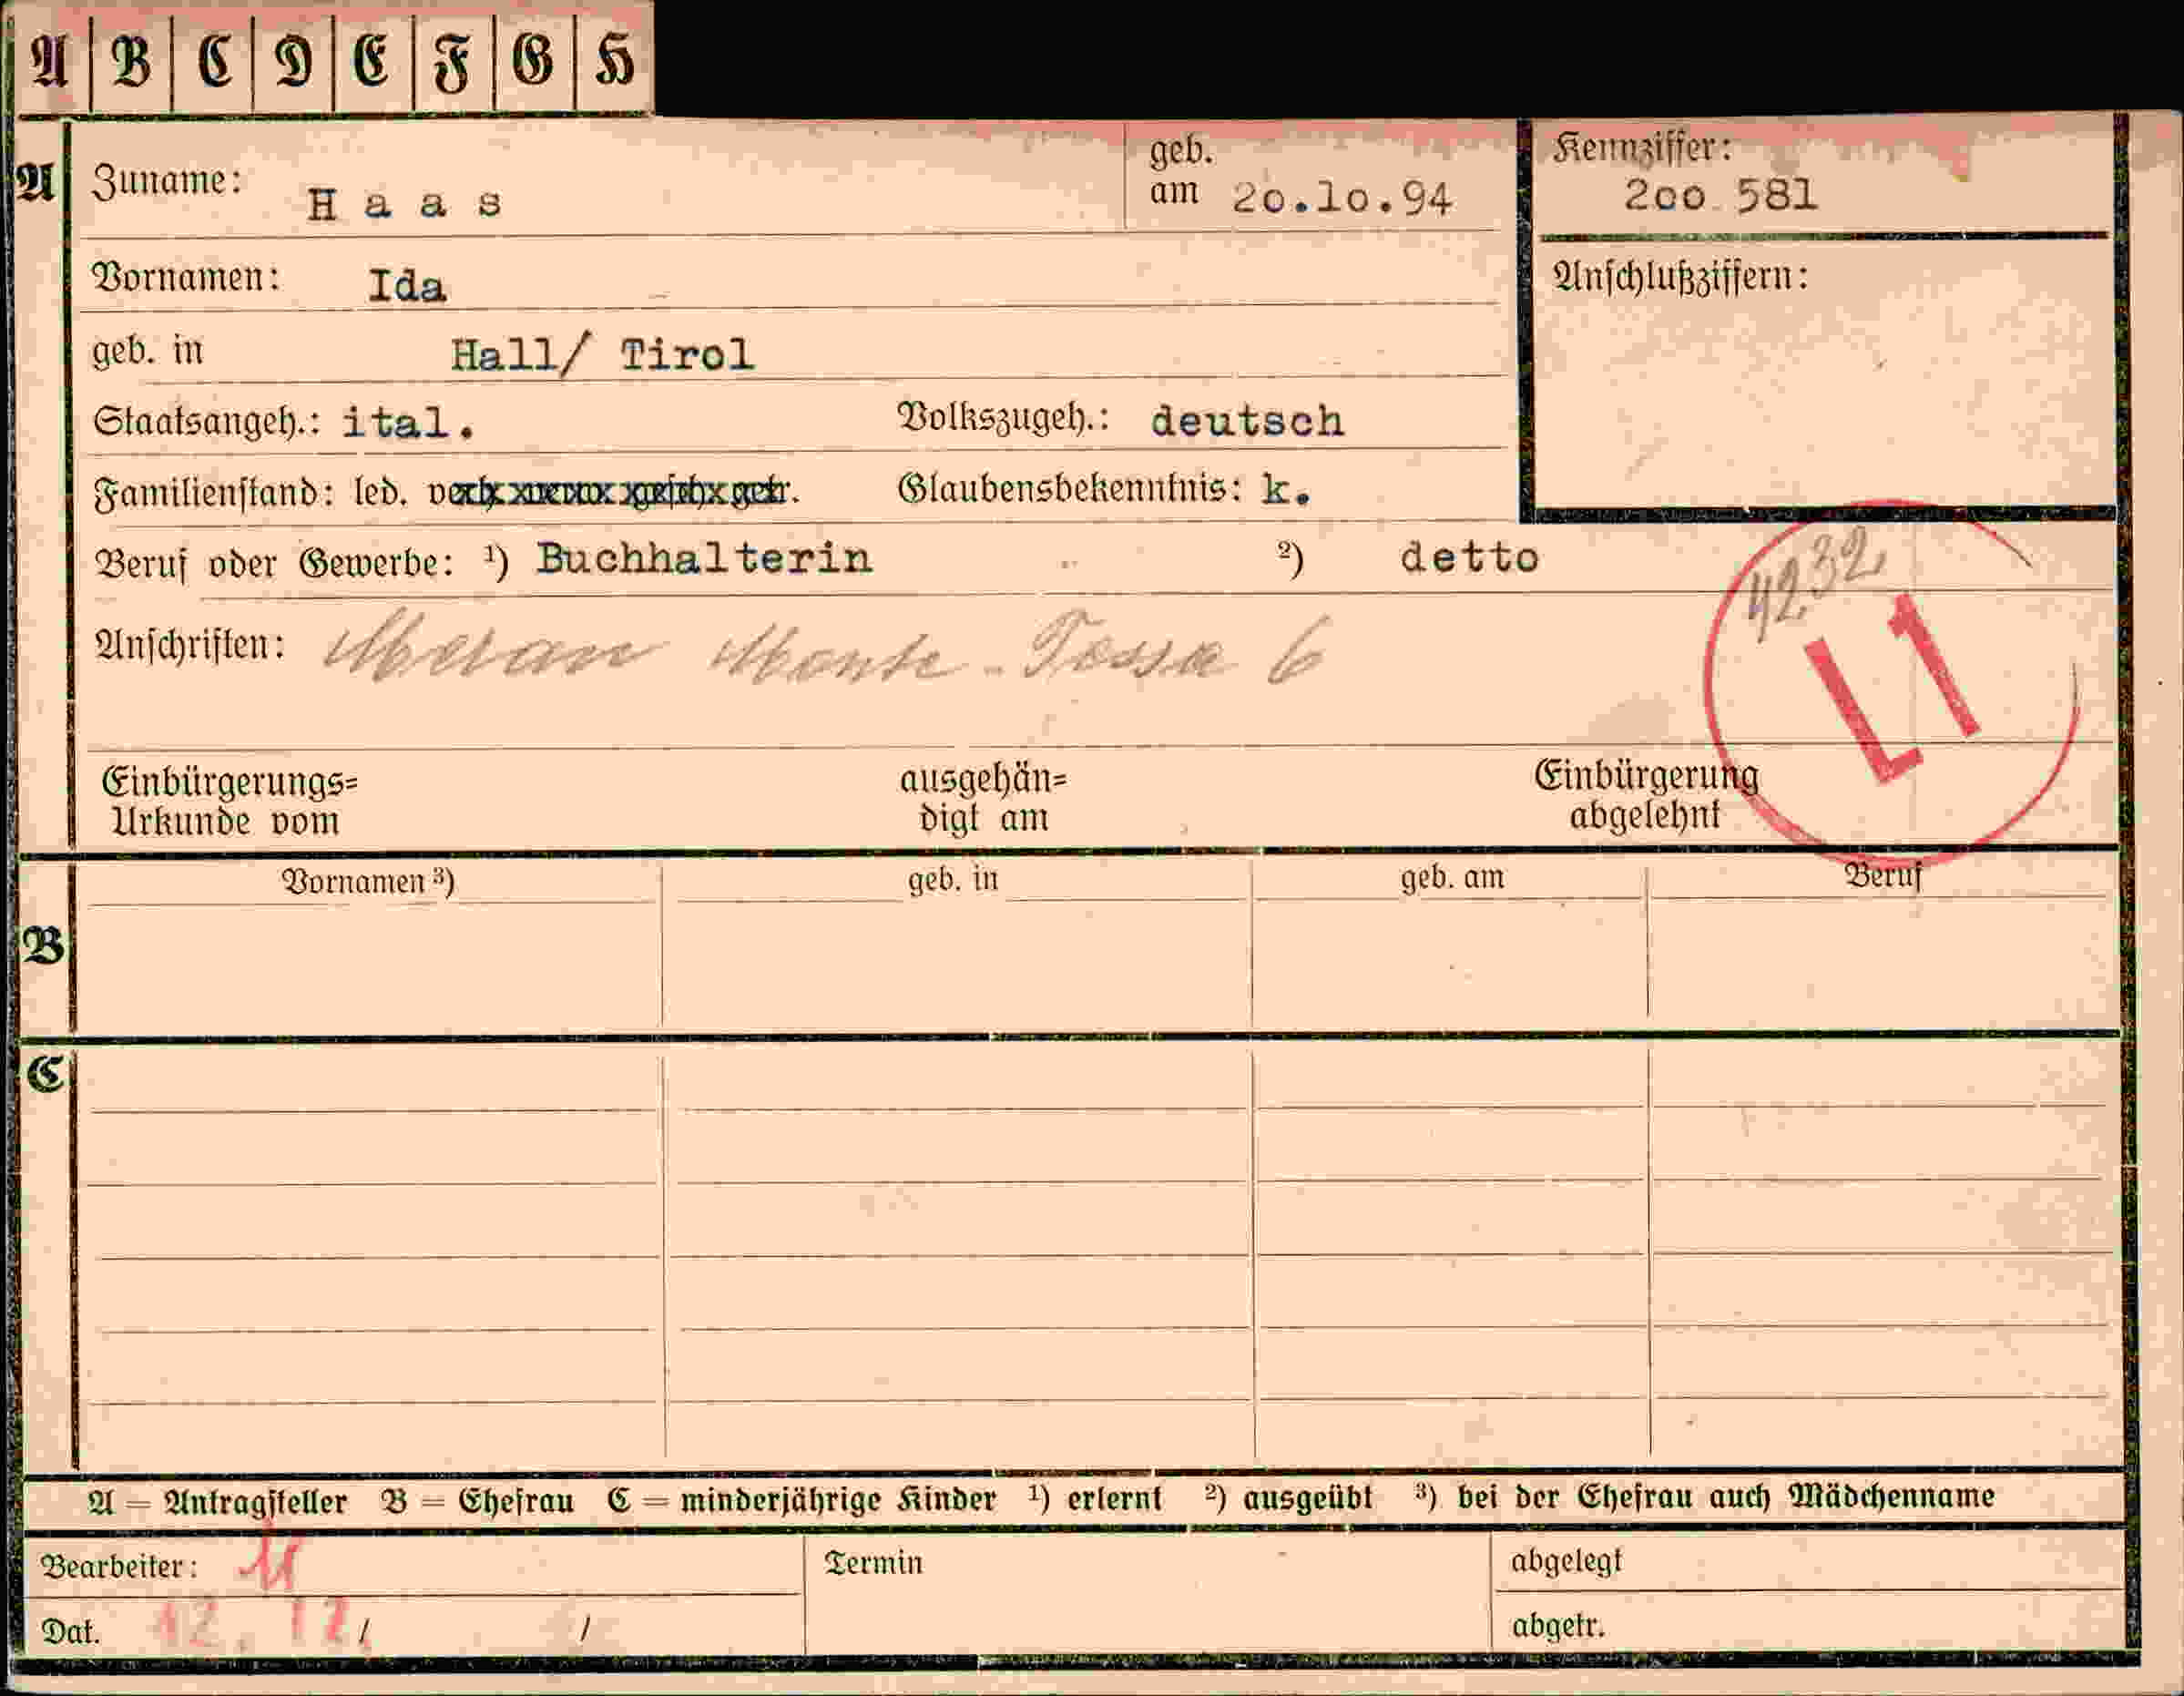 A B C D E F G H
A Zuname: Haas geb. am 20.10.94 Kennziffer: 200 581
Vornamen: Ida Anschlußziffern:
geb. in Hall/ Tirol
Staatsangeh.: ital. Volkszugeh.: deutsch
Familienstand: led. verh. verw. gesch. getr. Glaubensbekenntnis: k.
Beruf oder Gewerbe: ¹) Buchhalterin ²) detto
4232
L1
Anschriften: Meran Monte-Tossa 6
Einbürgerungs= ausgehän= Einbürgerung
Urkunde vom digt am abgelehnt
B Vornamen ³) geb. in geb. am Beruf
C
A = Antragsteller B = Ehefrau C = minderjährige Kinder ¹) erlernt ²) ausgeübt ³) bei der Ehefrau auch Mädchenname
Bearbeiter: Termin abgelegt
Dat. 12. 12. / / abgetr.